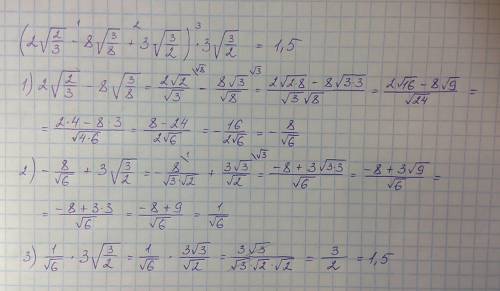 (2√(2/3) ¹- 8√(3/8) ²+ 3√(3/2)) ³· 3√(3/2) = 1,5
1) 2√(2/3) - 8√(3/8) = 2√2/√3 \√8 - 8√3/√8 \√3 = (2√2·8 - 8√3·3)/(√3 √8) = (2√16 - 8√9)/√24 =
= (2·4 - 8·3)/√4·6 = (8 - 24)/(2√6) = - 16/(2√6) = - 8/√6
2) - 8/√6 + 3√(3/2) = - 8/√3·2 \1 + 3√3/√2 \√3 = (-8 + 3√3·3)/√6 = (-8 + 3√9)/√6 =
= (-8 + 3·3)/√6 = (-8 + 9)/√6 = 1/√6
3) 1/√6 · 3√(3/2) = 1/√6 · 3√3/√2 = 3√3/(√3·√2·√2) = 3/2 = 1,5